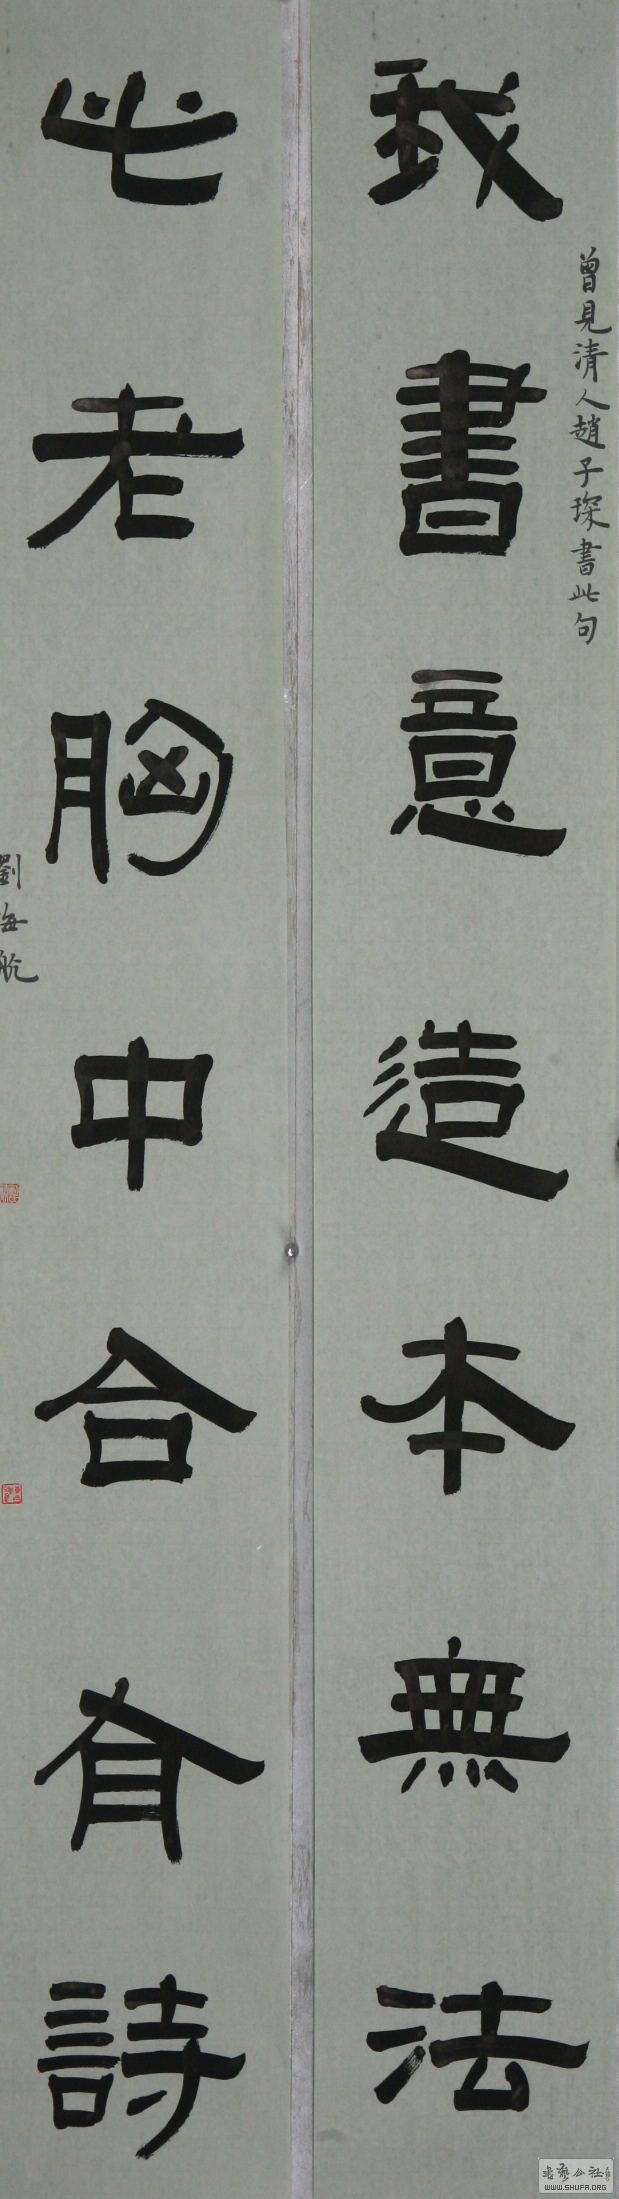 我書意造本無法
曾見清人趙子琛書此句
此老胸中合有詩
劉海航
書藝公社
WWW.SHUFA.ORG